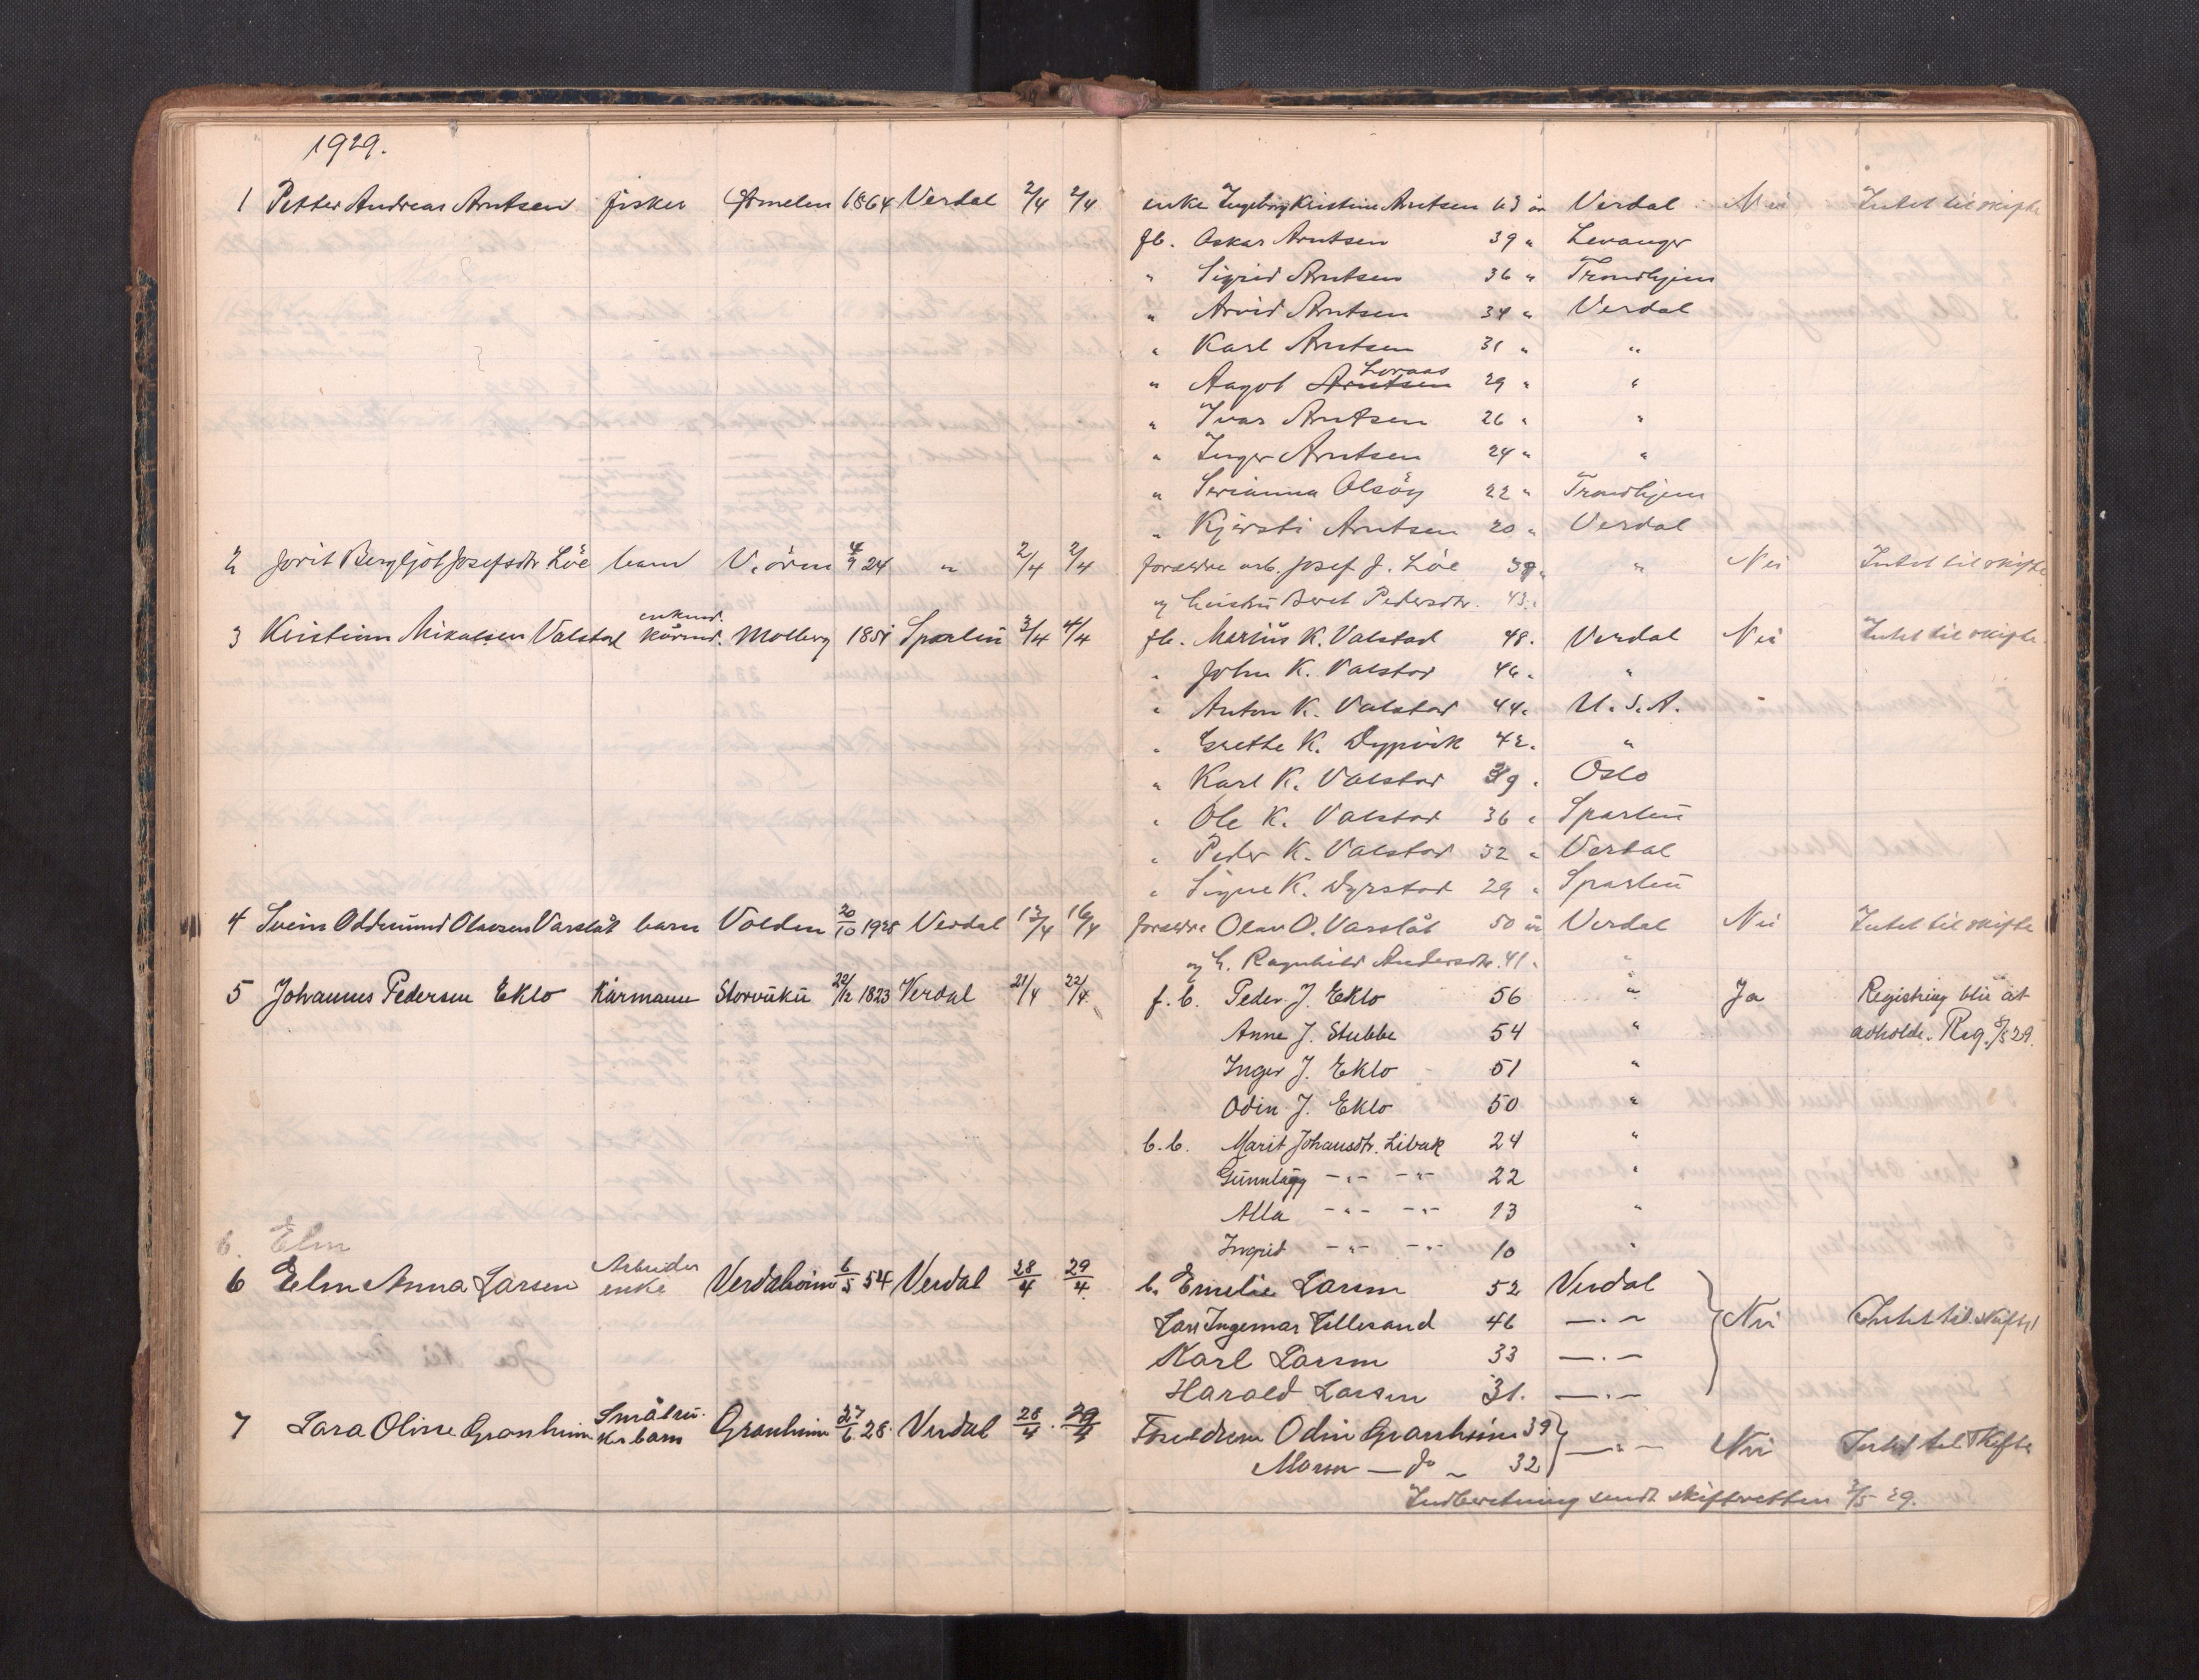 1929.
1 Petter Andreas Arntsen fisker Ørmelen 1864 Verdal 2/4 2/4 enke Ingeborg Kristine Arntsen 63 år Verdal Nei Intet til skifte
fb. Oskar Arntsen 39 " Levanger
" Sigrid Arntsen 36 " Trondhjem
" Arvid Arntsen 34 " Verdal
" Karl Arntsen 31 " "
Lovaas
" Aagot Arntsen 29 " "
" Ivar Arntsen 26 " "
" Inger Arntsen 24 " "
" Serianna Olsöy 22 " Trondhjem
" Kjersti Arntsen 20 " Verdal
2 Jorit Bergljot Josefsdtr Löe barn V.örm 4/9 24 " 2/4 2/4 foreldre arb. Josef J. Löe 39 " " Nei Intet til skifte
og Beret Pedersdtr. 43 "
enkem.
3 Kristian Mikalsen Valstad kårmd. Molberg 1851 Sparbu 3/4 4/4 fb. Merius K. Valstad 48. Verdal Nei Intet til skifte
" John K. Valstad 46 " "
" Anton K. Valstad 44 " U.S.A.
" Grethe K. Dypvik 42. "
" Karl K. Valstad 39 . Oslo
" Ole K. Valstad 36 " Sparbu
" Peder K. Valstad 32 " Verdal
" Signe K. Dyrstad 29 " Sparbu
4 Svein Oddmund Olavsen Varslåt barn Volden 20/10 1928 Verdal 13/4 16/4 foreldre Olav O. Varslåt 50 år Verdal Nei Intet til skifte
og h. Ragnhild Andersdtr. 41. "
5 Johannes Pedersen Eklo Kårmann Storvuku 22/12 1823 Verdal 21/4 22/4 f.b. Peder J. Eklo 56 " Ja Registring blir at
Anne J. Stubbe 54 " avholde. Reg. 8/5 29.
Inger J. Eklo 51 "
Odin J. Eklo 50 "
b.b. Marit Johansdtr. Libak 24 "
Gunnlaug -"- -"- 22 "
Alla -"- -"- 13 "
6. Elen
Ingrid -"- -"- 10 "
Arbeider
6 Elen Anna Larsen enke Verdaleim 6/5 54 Verdal 28/4 29/4 b. Emelie Larsen 52 Verdal
Lars Ingemar Lillesand 46 —"— Nei Intet til skifte
Karl Larsen 33 —"—
Harald Larsen 31. —"—
Småbru-
7 Lara Oline Granheim ker barn Granheim 27/6 28 Verdal 28/4 29/4 Foreldrene Odin Granheim 39 —"— Nei Intet til skifte
Maren — do — 32
Indberetning sendt skifteretten 2/5 29.